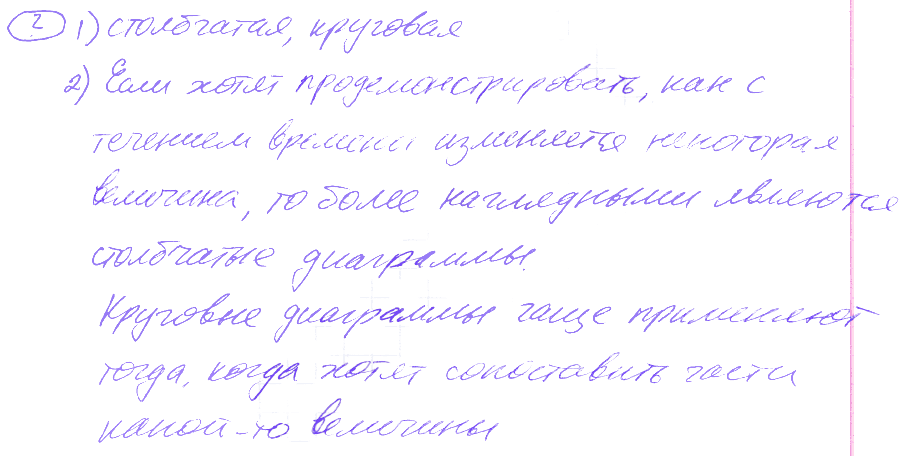 2 1) столбчатая, круговая
2) Если хотят продемонстрировать, как с
течением времени изменяется некоторая
величина, то более наглядными являются
столбчатые диаграммы.
Круговые диаграммы чаще применяют
тогда, когда хотят сопоставить части
какой-то величины